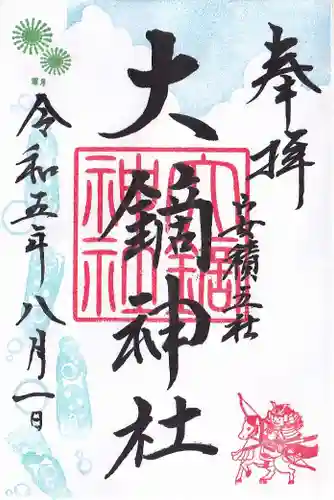 奉拝
安積五社
大鏑神社
令和五年八月一日